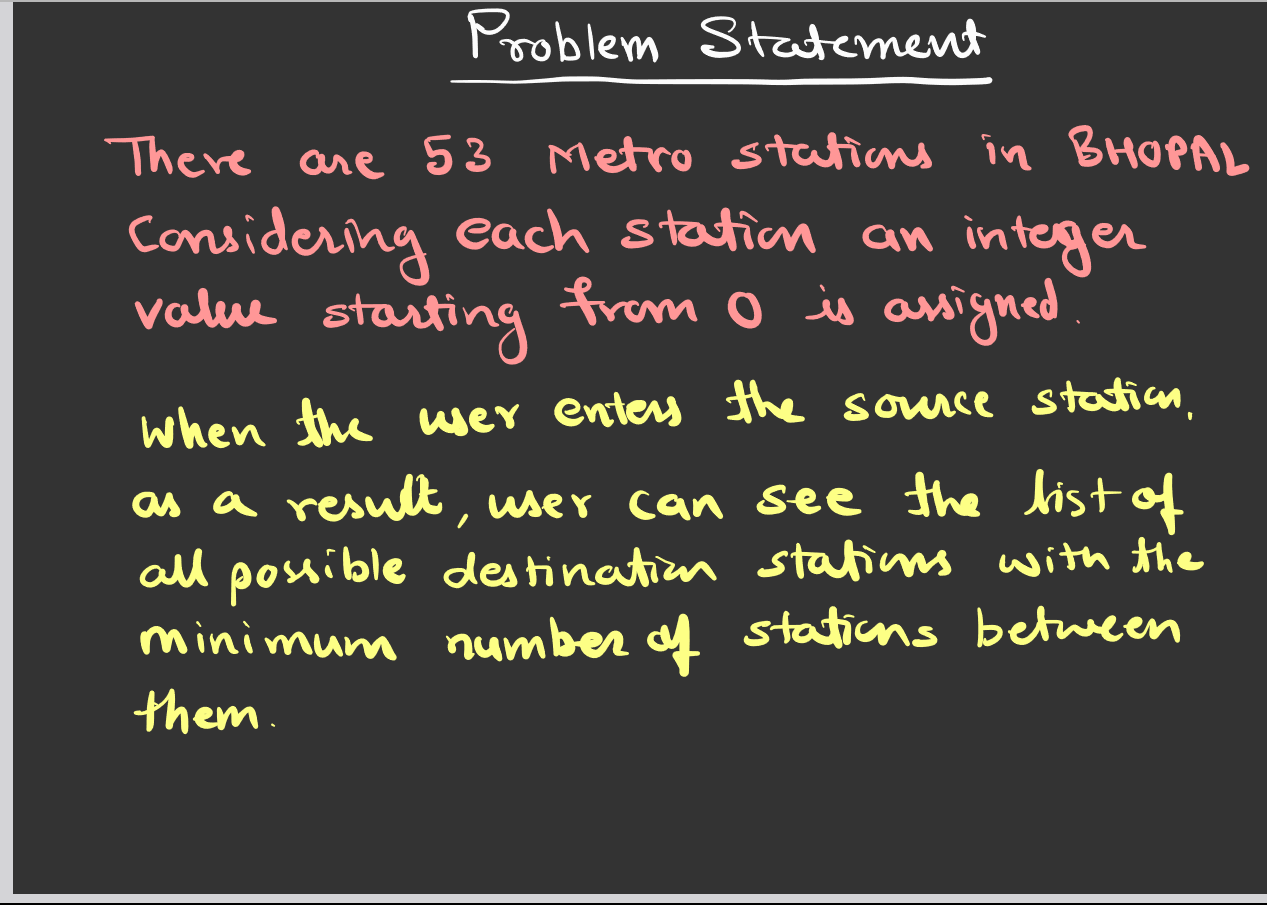 Problem Statement
There are 53 Metro stations in BHOPAL
Considering each station an integer
value starting from 0 is assigned.
When the user enters the source station,
as a result, user can see the list of
all possible destination stations with the
minimum number of stations between
them.